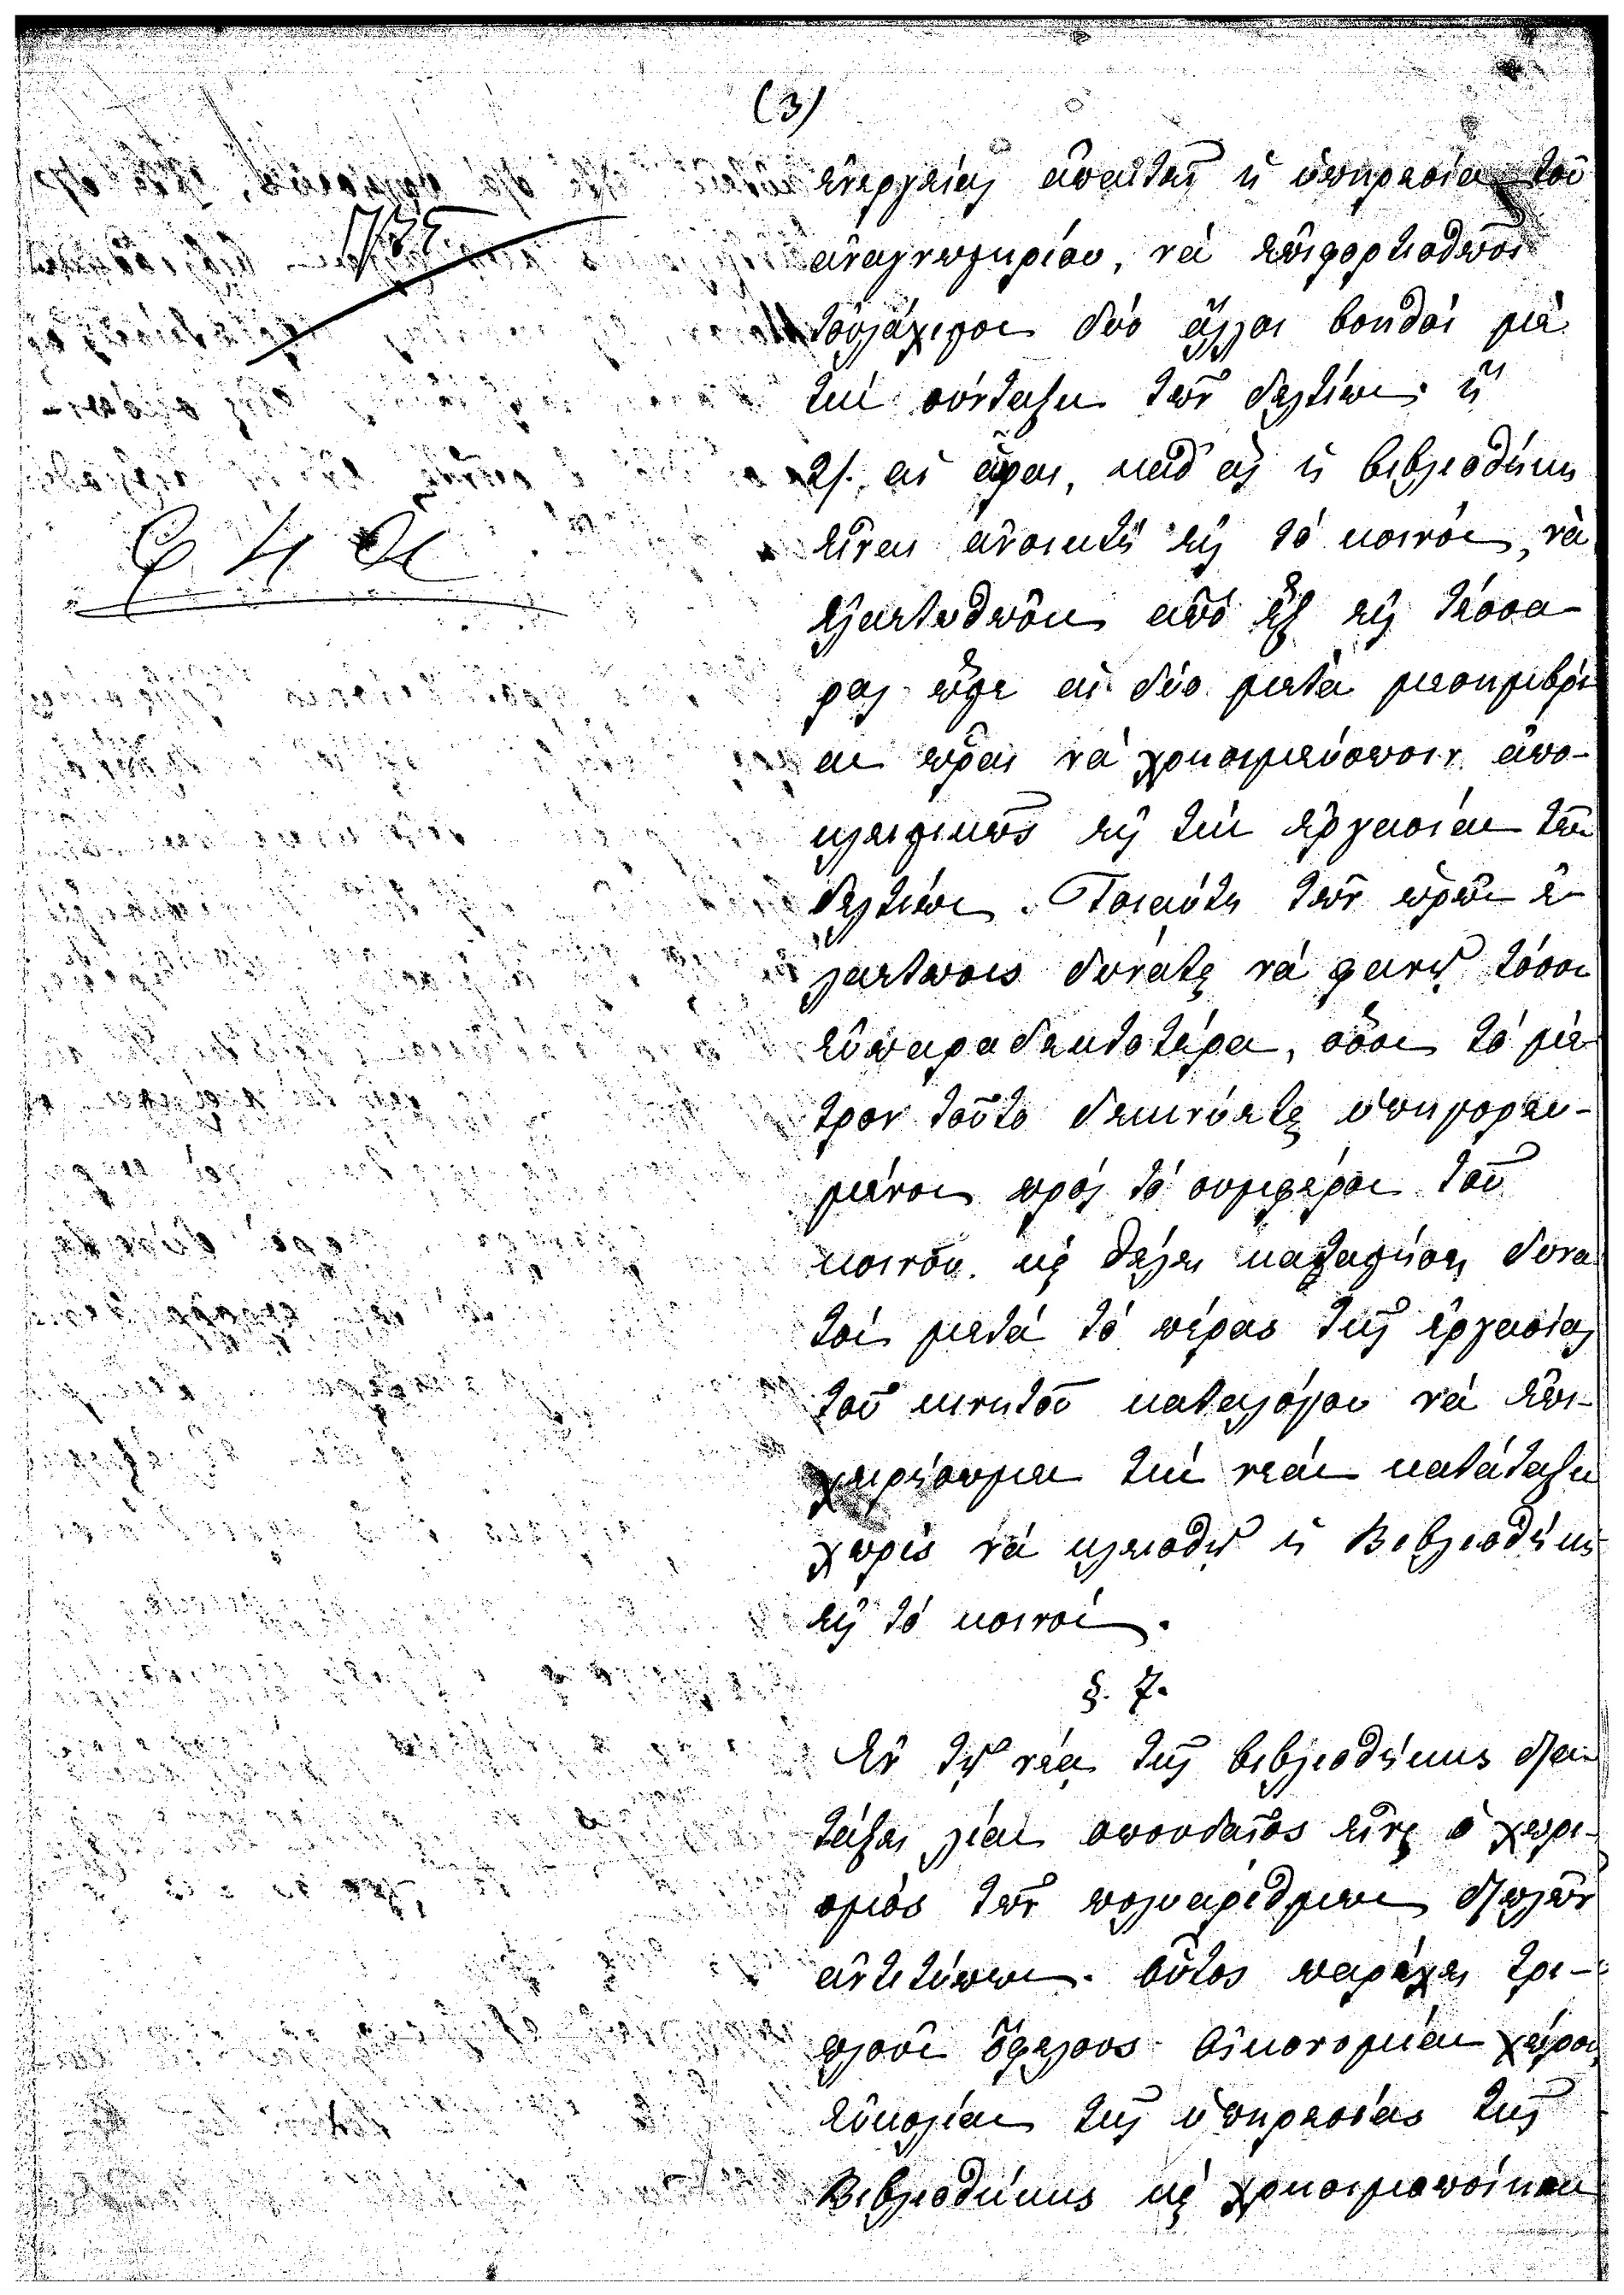 (3)
ἐνεργείας ἀπαιτεῖ ἡ ὑπηρεσία τοῦ
ἀναγνωστηρίου, νὰ ἐπιφορτισθῶσι
τοὐλάχιστον δύο ἄλλοι βοηθοὶ μὲ
τὴν σύνταξιν τῶν δελτίων· ἢ
2/. αἱ ὧραι, καθ' ἃς ἡ βιβλιοθήκη
εἶναι ἀνοικτὴ εἰς τὸ κοινόν, νὰ
ἐλαττωθῶσιν ἀπὸ ἓξ εἰς τέσσα-
ρας ὥστε αἱ δύο μετὰ μεσημβρί
αν ὧραι νὰ χρησιμεύσωσιν ἀπο-
κλειστικῶς εἰς τὴν ἐργασίαν τῶν
δελτίων. Τοιαύτη τῶν ὡρῶν ἐ-
λάττωσις δύναται νὰ φανῇ τόσον
εὐπαραδεκτοτέρα, ὅσον τὸ μέ
τρον τοῦτο δεικνύεται ὑπηγορευ-
μένον πρὸς τὸ συμφέρον τοῦ
κοινοῦ καὶ θέλει καταστήσει δυνα
τὸν μετὰ τὸ πέρας τῆς ἐργασίας
τοῦ κινητοῦ καταλόγου νὰ ἐπι-
χειρήσωμεν τὴν νέαν κατάταξιν
χωρὶς νὰ κλεισθῇ ἡ Βιβλιοθήκη
εἰς τὸ κοινόν.
§. 7.
Ἐν τῇ νέᾳ τῆς βιβλιοθήκης δια
τάξει λίαν σπουδαῖος εἶναι ὁ χωρι-
σμὸς τῶν πολυαρίθμων διπλῶν
ἀντιτύπων. Οὗτος παρέχει τρι-
πλοῦν ὄφελος· Οἰκονομίαν χώρου,
εὐκολίαν τῆς ὑπηρεσίας τῆς
Βιβλιοθήκης καὶ χρησιμοποίησιν